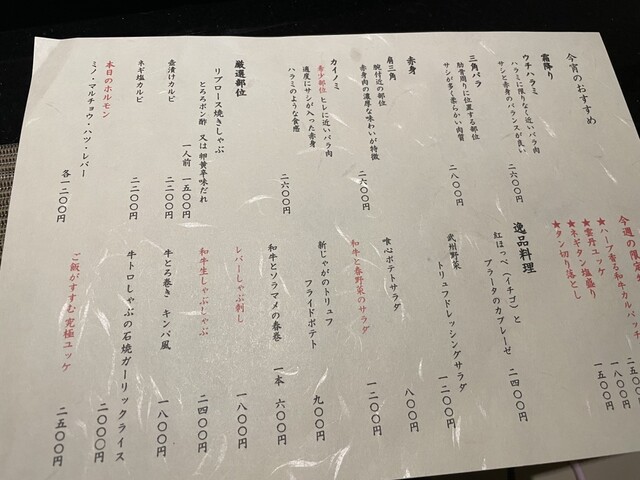 今宵のおすすめ
霜降り
ウチハラミ
ハラミに限りなく近いバラ肉
サシと赤身のバランスが良い
二六〇〇円
三角バラ
肋骨周りに位置する部位
サシが多く柔らかい肉質
二八〇〇円
赤身
肩三角
腕付近の部位
赤身肉の濃厚な味わいが特徴
二六〇〇円
カイノミ
希少部位 ヒレに近いバラ肉
適度にサシが入った赤身
ハラミのような食感
二六〇〇円
厳選部位
リブロース焼きしゃぶ
とろろポン酢 又は 卵黄草味だれ
一人前 一五〇〇円
壺漬けカルビ
二二〇〇円
ネギ塩カルビ
二二〇〇円
本日のホルモン
ミノ・マルチョウ・ハツ・レバー
各一二〇〇円
今週の限
★ハーブ香る和牛カルパッチ
★雲丹ユッケ
一五〇〇
★ネギタン塩盛り
一八〇〇円
★タン切り落とし
一五〇〇円
逸品料理
紅ほっぺ(イチゴ)と
ブラータのカプレーゼ
二四〇〇円
武州野菜
トリュフドレッシングサラダ
一二〇〇円
喰心ポテトサラダ
八〇〇円
和牛と春野菜のサラダ
一二〇〇円
新じゃがのトリュフ
フライドポテト
九〇〇円
和牛とソラマメの春巻
一本 六〇〇円
レバーしゃぶ刺し
一八〇〇円
和牛生しゃぶしゃぶ
二四〇〇円
牛とろ巻き キンパ風
一八〇〇円
牛トロしゃぶの石焼ガーリックライス
二〇〇〇円
ご飯がすすむ究極ユッケ
二五〇〇円